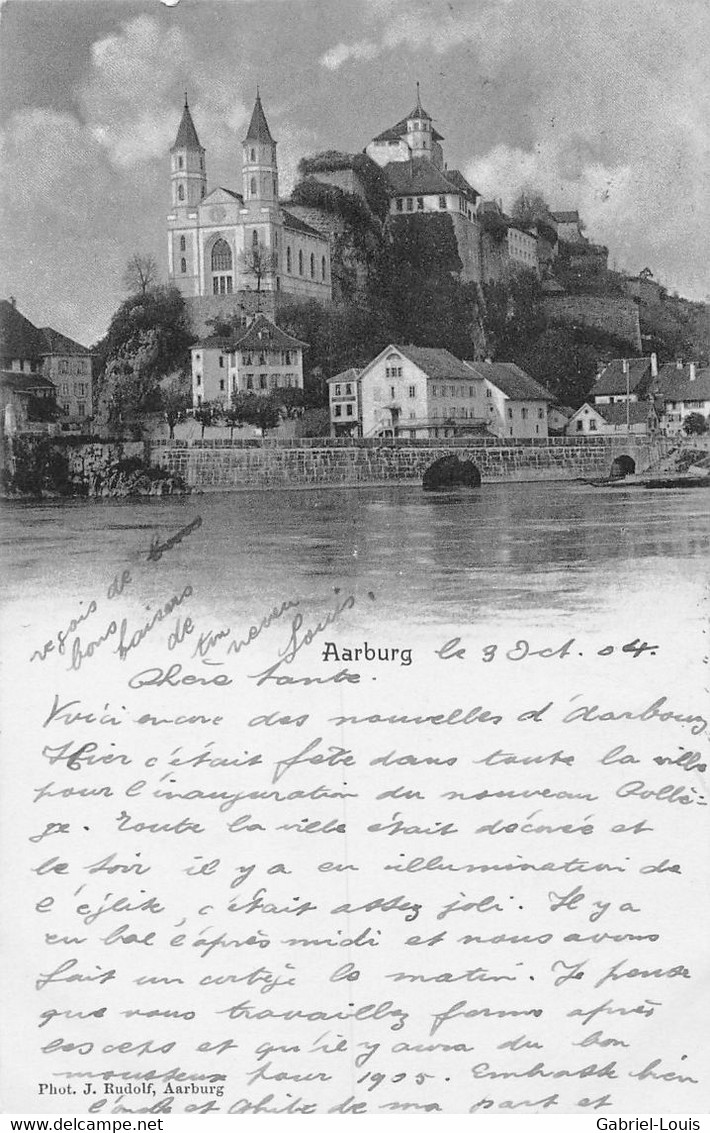 Aarburg le 3 Oct. 04.
Chère tante.
Voici encore des nouvelles d'Aarbourg
Hier c'était fête dans toute la ville
pour l'inauguration du nouveau Collè-
ge. Toute la ville était décorée et
le soir il y a eu illumination de
l'église, c'était assez joli. Il y a
eu bal l'après midi et nous avons
fait un cortège le matin. Je pense
que vous travaillez ferme après
les ceps et qu'il y aura du bon
mousseux pour 1905. Embrasse bien
l'oncle et de ma part et
reçois de bons
bons baisers
de ton neveu
Louis.
Phot. J. Rudolf, Aarburg
Gabriel-Louis